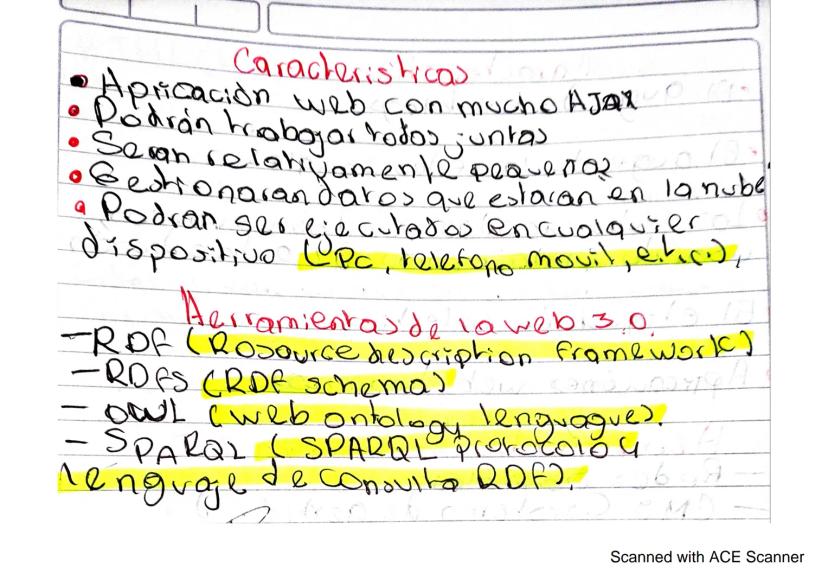 Caracteristicas
• Apricación web con mucho AJAX
• Podrán trabajar todos juntas
• Seran relativamente pequeñas
• Gestionaran datos que estaran en la nube
• Podran ser ejecutados en cualquier
dispositivo (Pc, telefono movil, e.t.c.),
Herramientas de la web 3.0.
- RDF (Rosource description framework)
- RDFS (RDF schema)
- OWL (web ontology lenguague).
- SPARQL (SPARQL protocolo y
lenguaje de consulta RDF).
Scanned with ACE Scanner